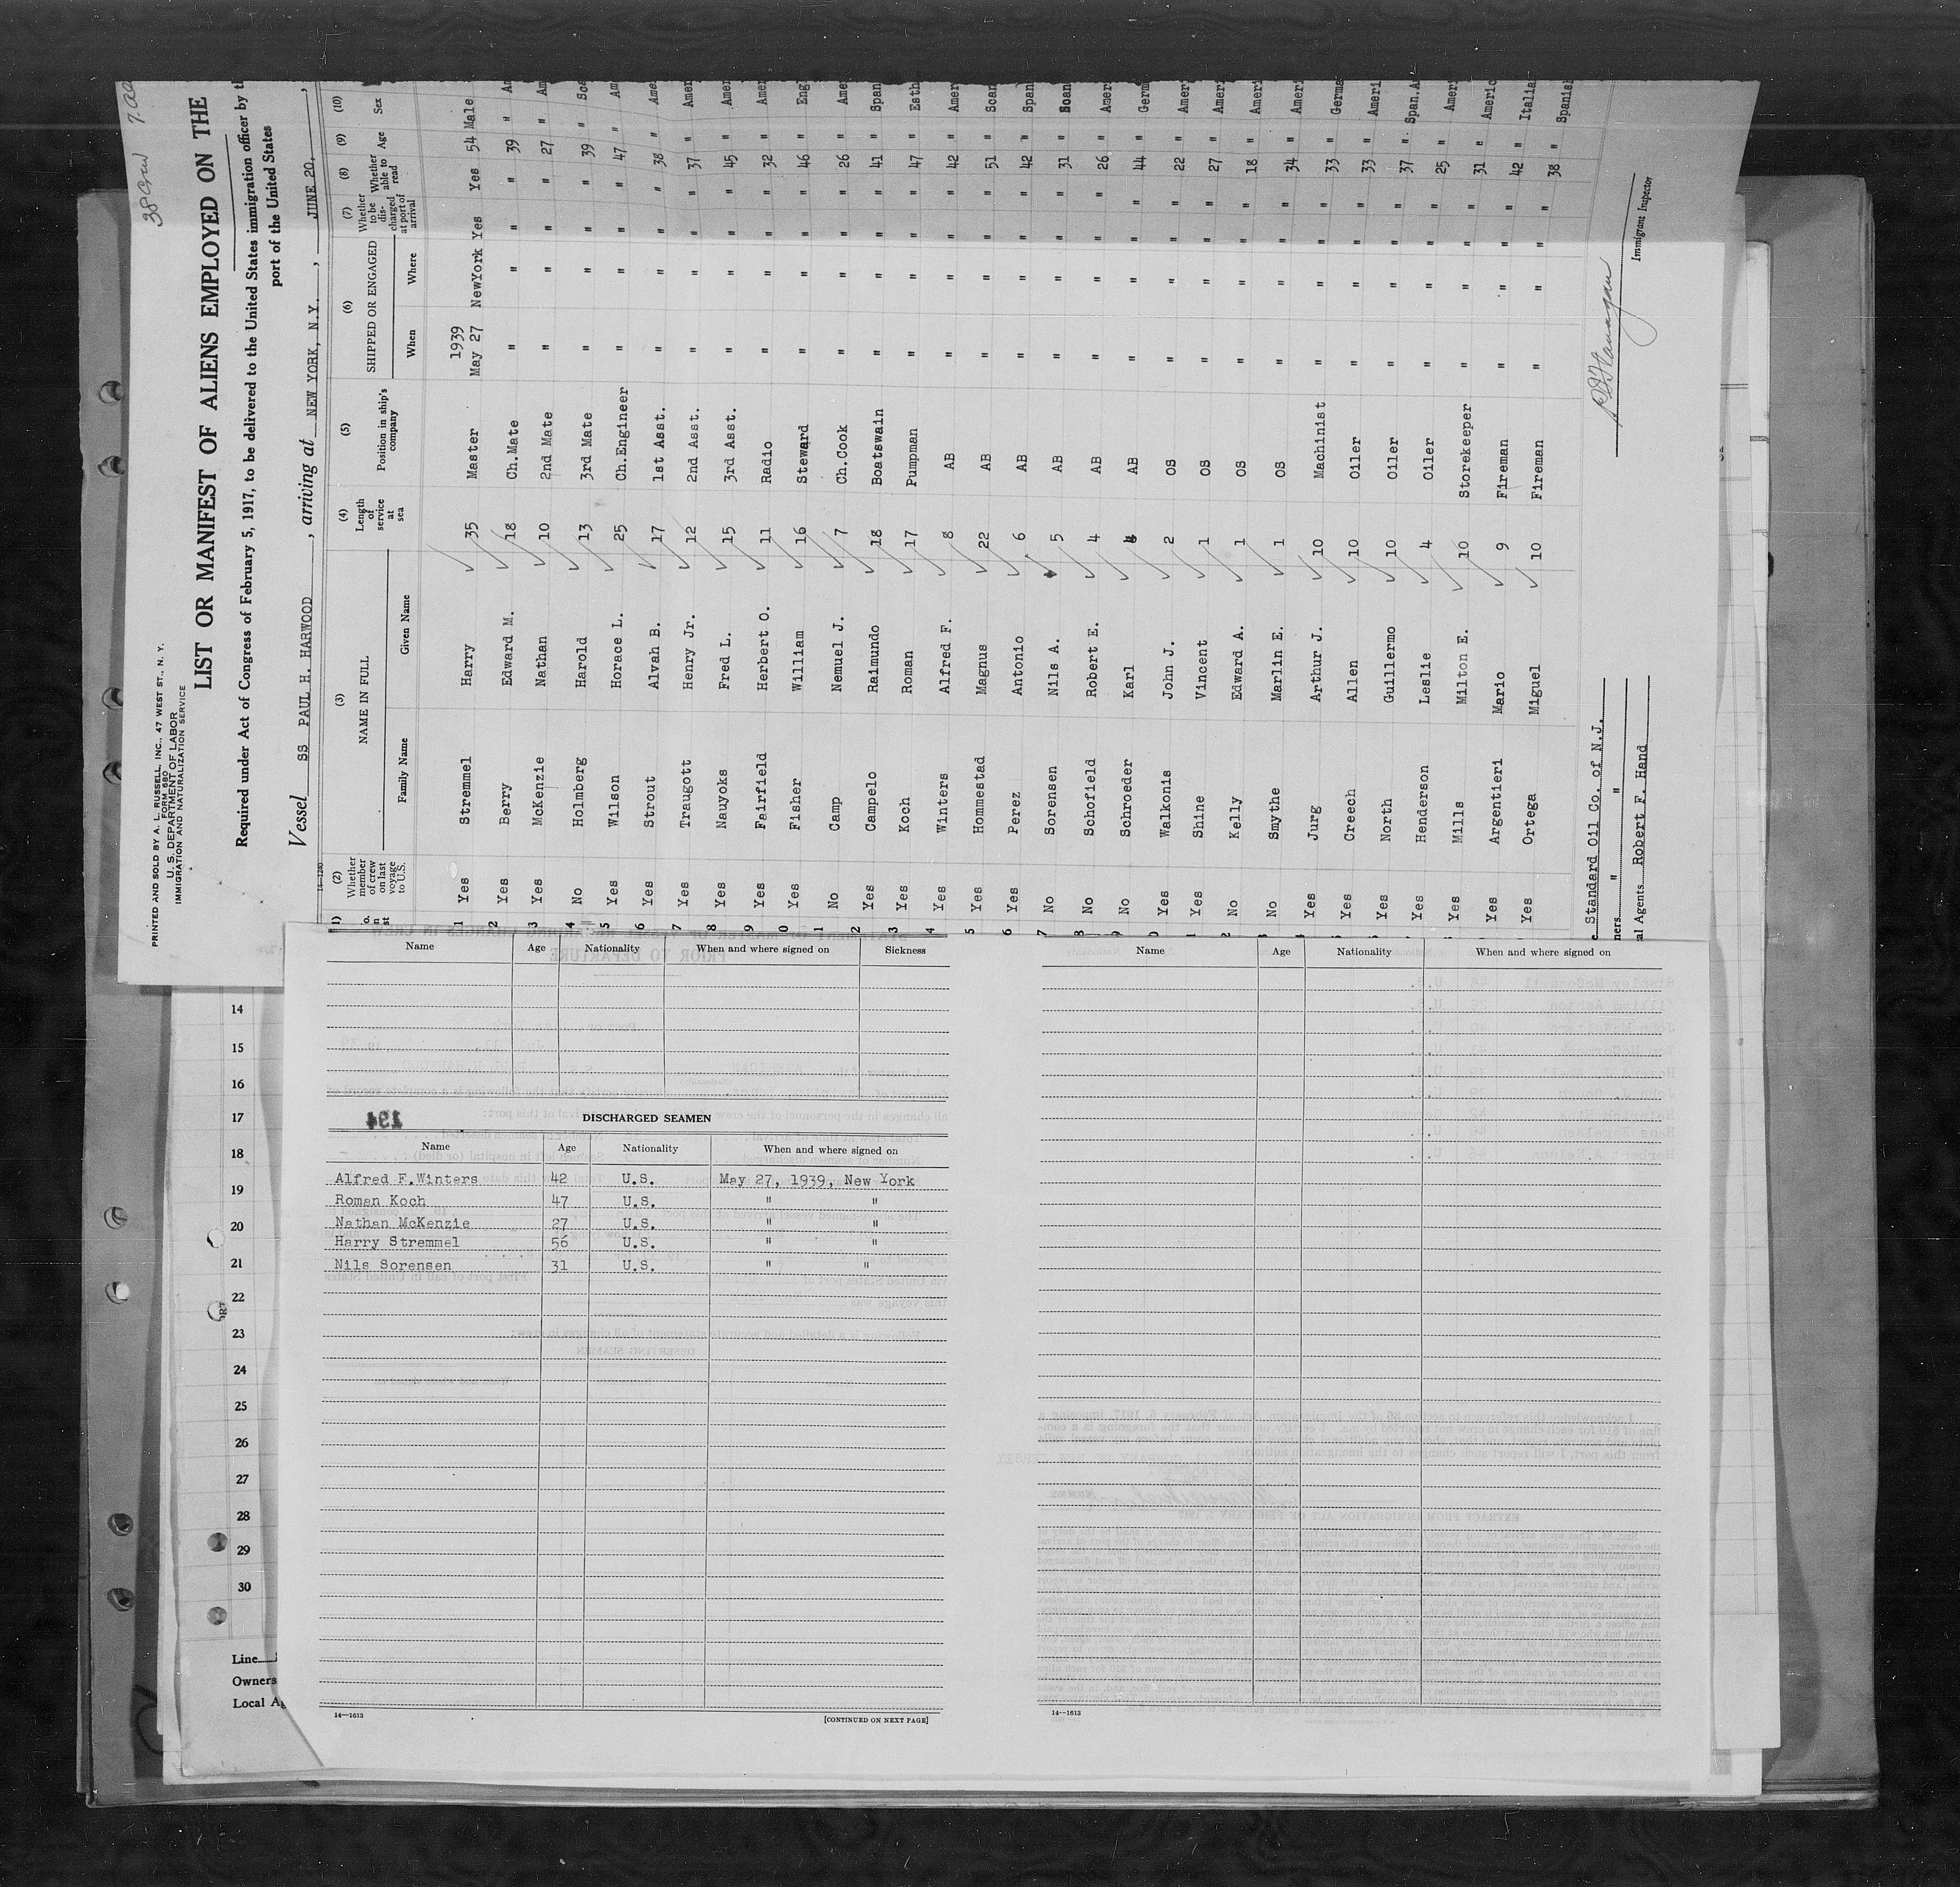 38 Gru 7-aa
PRINTED AND SOLD BY A. L. RUSSELL, INC., 47 WEST ST., N. Y.
FORM 680
U. S. DEPARTMENT OF LABOR
IMMIGRATION AND NATURALIZATION SERVICE
LIST OR MANIFEST OF ALIENS EMPLOYED ON THE
Required under Act of Congress of February 5, 1917, to be delivered to the United States immigration officer by th
port of the United States
Vessel SS PAUL H. HARWOOD, arriving at NEW YORK, N.Y., JUNE 20,
14-1230
(2) (3) (4) (5) (6) (7) (8) (9) (10)
Whether member of crew on last voyage to U.S. NAME IN FULL Length of service at sea Position in ship's company SHIPPED OR ENGAGED Whether to be discharged at port of arrival Whether able to read Age Sex
Family Name Given Name When Where
1939
1 Yes Stremmel Harry 35 Master May 27 NewYork Yes Yes 54 Male
2 Yes Berry Edward M. 18 Ch.Mate " " " " 39 " Am
3 Yes McKenzie Nathan 10 2nd Mate " " " " 27 " Am
4 No Holmberg Harold 13 3rd Mate " " " " 39 " Sca
5 Yes Wilson Horace L. 25 Ch.Engineer " " " " 47 " Am
6 Yes Strout Alvah B. 17 1st Asst. " " " " 38 " Ame
7 Yes Traugott Henry Jr. 12 2nd Asst. " " " " 37 " Amer
8 Yes Nauyoks Fred L. 15 3rd Asst. " " " " 45 " Amer
9 Yes Fairfield Herbert O. 11 Radio " " " " 32 " Amer
0 Yes Fisher William 16 Steward " " " " 46 " Eng
1 No Camp Nemuel J. 7 Ch.Cook " " " " 26 " Ame
2 Yes Campelo Raimundo 18 Boatswain " " " " 41 " Span
3 Yes Koch Roman 17 Pumpman " " " " 47 " Esth
4 Yes Winters Alfred F. 8 AB " " " " 42 " Amer
5 Yes Hommestad Magnus 22 AB " " " " 51 " Scan
6 Yes Perez Antonio 6 AB " " " " 42 " Span
7 No Sorensen Nils A. 5 AB " " " " 31 " Scan
8 No Schofield Robert E. 4 AB " " " " 26 " Amer
9 No Schroeder Karl AB " " " " 44 " Germ
0 Yes Walkonis John J. 2 OS " " " " 22 " Amer
1 Yes Shine Vincent 1 OS " " " " 27 " Ameri
2 No Kelly Edward A. 1 OS " " " " 18 " Ameri
3 No Smythe Marlin E. 1 OS " " " " 34 " Ameri
4 Yes Jurg Arthur J. 10 Machinist " " " " 33 " Germa
5 Yes Creech Allen 10 Oiler " " " " 33 " Ameri
Yes North Guillermo 10 Oiler " " " " 37 " Span.A
Yes Henderson Leslie 4 Oiler " " " " 25 " Ameri
Yes Mills Milton E. 10 Storekeeper " " " " 31 " Americ
Yes Argentieri Mario 9 Fireman " " " " 42 " Italia
Yes Ortega Miguel 10 Fireman " " " " 38 " Spanish
e Standard Oil Co. of N.J.
ners " "
al Agents Robert F. Hand
Immigrant Inspector
Name Age Nationality When and where signed on Sickness
194
DISCHARGED SEAMEN
Name Age Nationality When and where signed on
Alfred F.Winters 42 U.S. May 27, 1939, New York
Roman Koch 47 U.S. " "
Nathan McKenzie 27 U.S. " "
Harry Stremmel 56 U.S. " "
Nils Sorensen 31 U.S. " "
14—1613 [CONTINUED ON NEXT PAGE]
Name Age Nationality When and where signed on
14—1613
14
15
16
17
18
19
20
21
22
23
24
25
26
27
28
29
30
Line
Owners
Local Ag